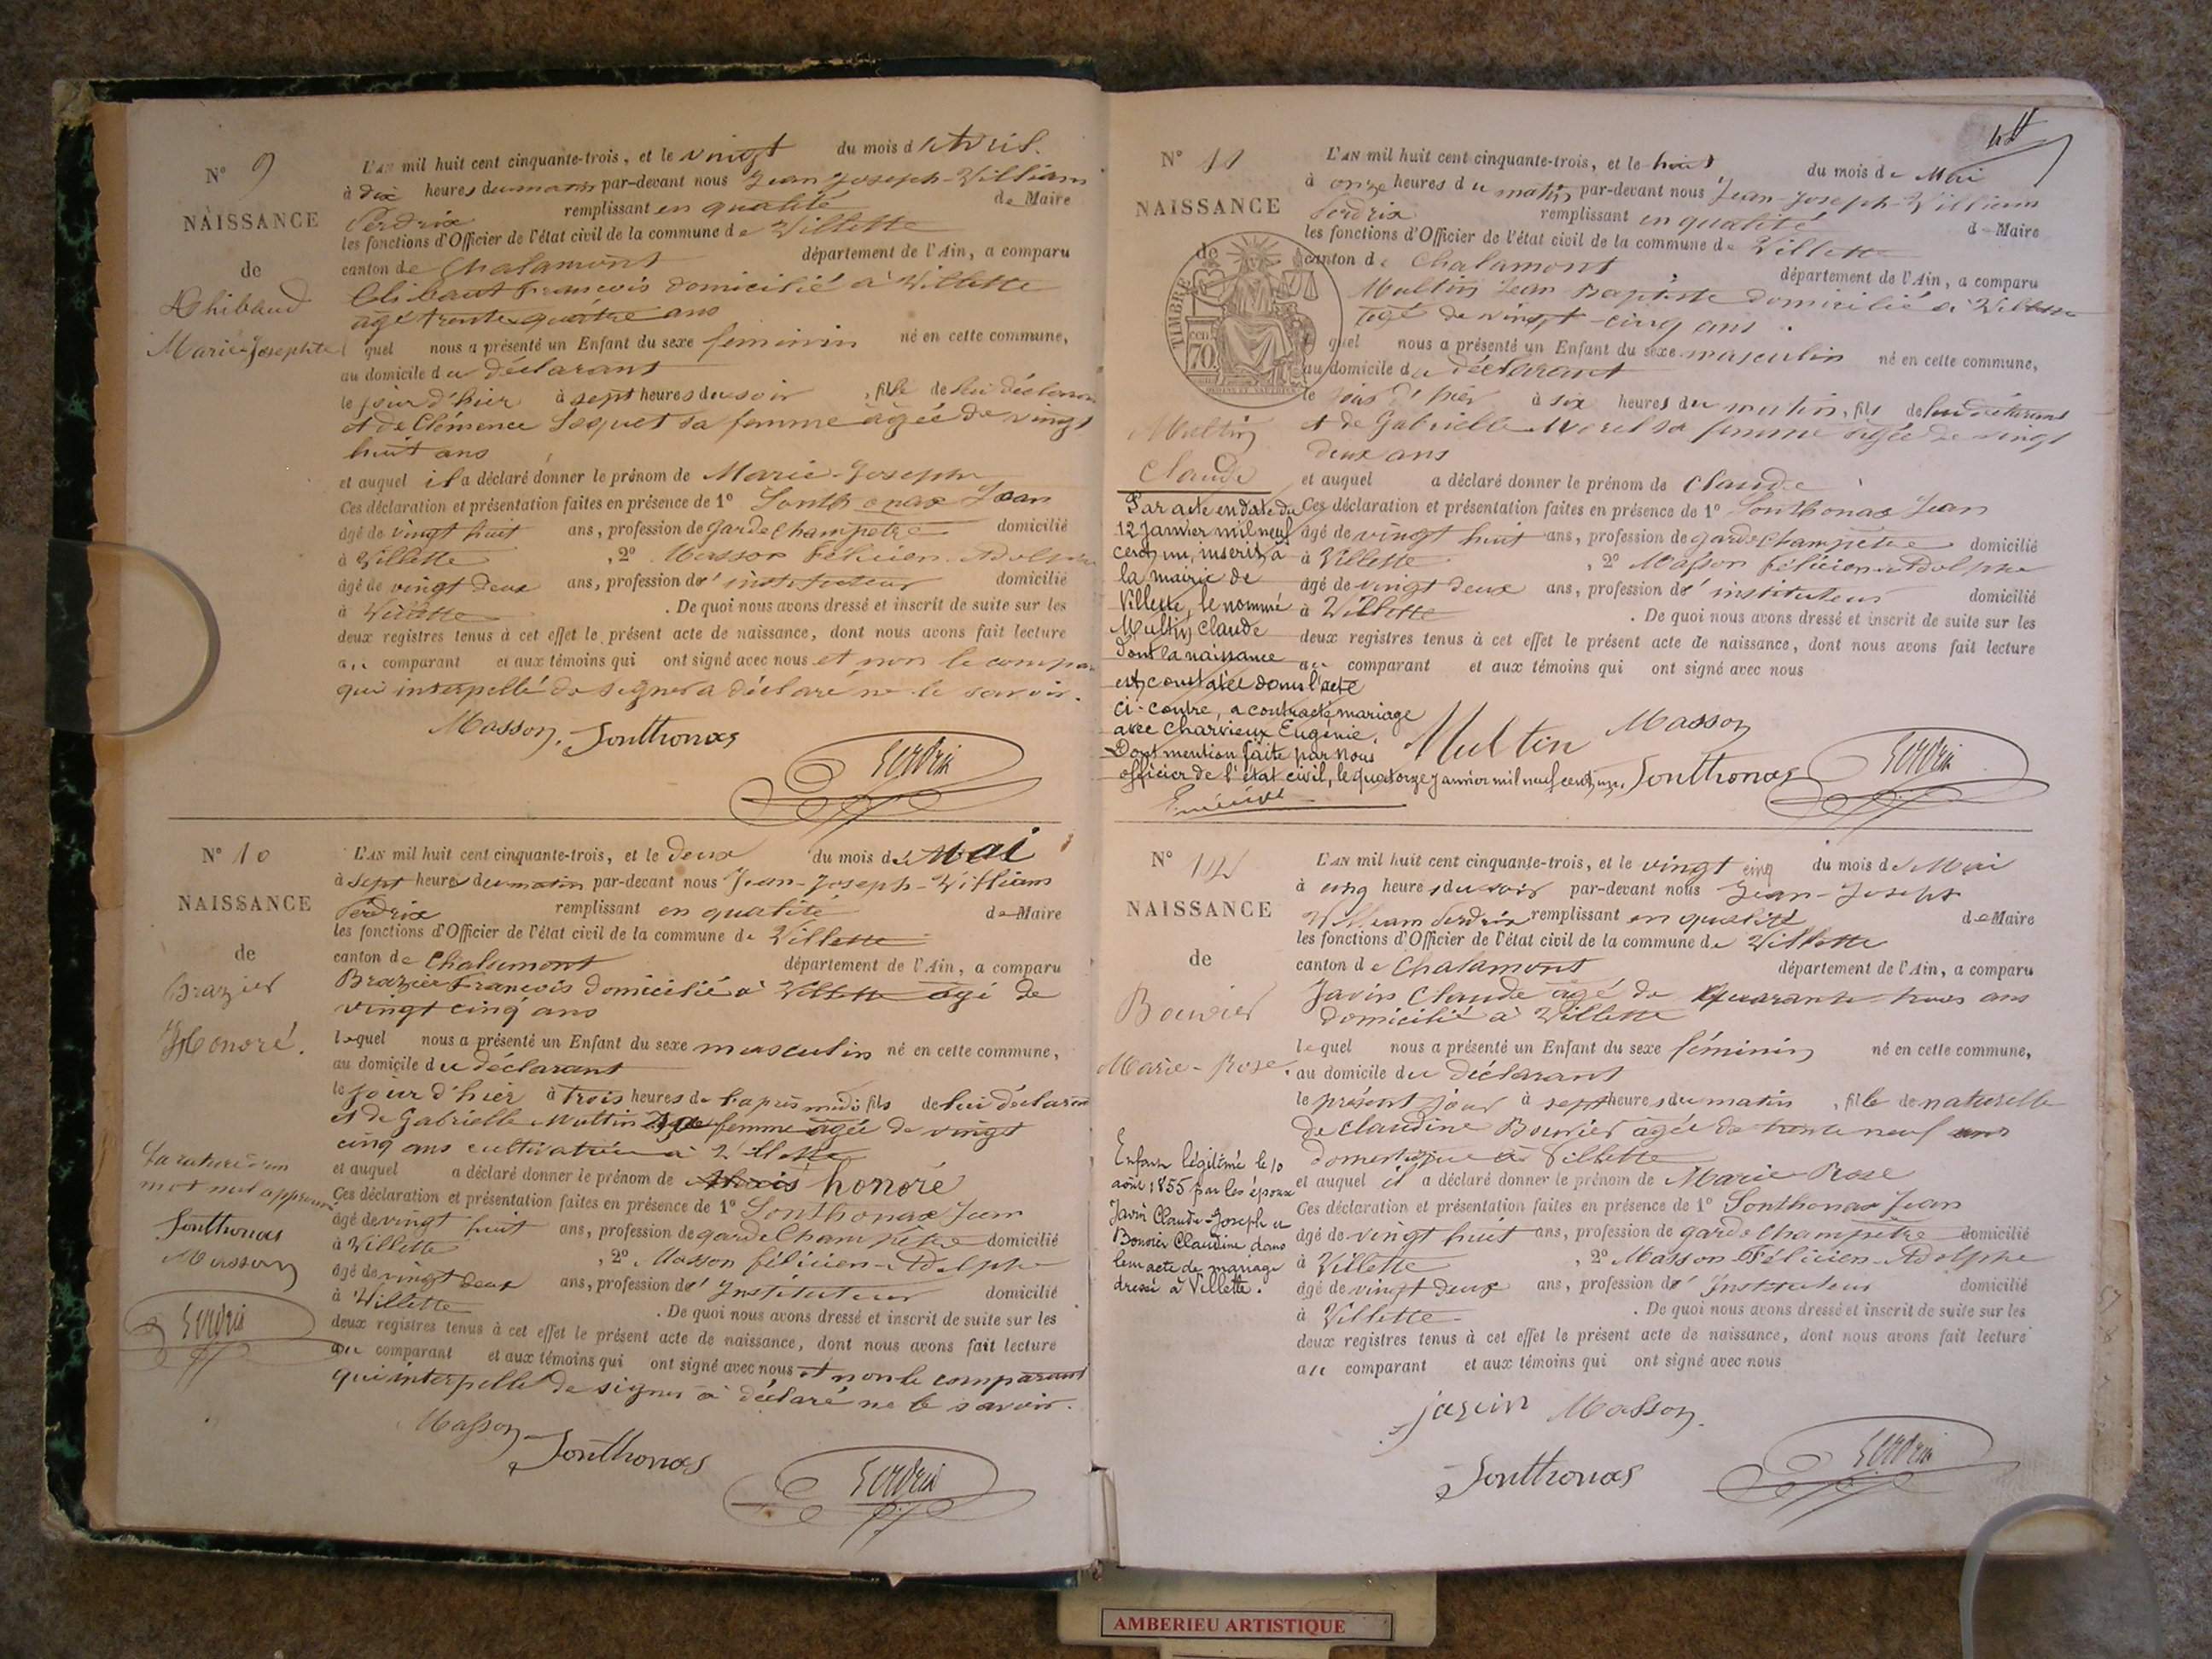 N° 9
NAISSANCE
de
Thibaud
Marie-Josephte
L'AN mil huit cent cinquante-trois, et le vingt du mois d'Avril.
à dix heures du matin par-devant nous Jean Joseph-William
Perdrix remplissant en qualité de Maire
les fonctions d'Officier de l'état civil de la commune de Villette
canton de Chalamont département de l'Ain, a comparu
François domicilié à Villette
agé trente quatre ans
quel nous a présenté un Enfant du sexe feminin né en cette commune,
au domicile du déclarant
le jour d'hier à sept heures du soir, fille de lui déclarant
et de Clémence sa femme agée de vingt
huit ans
et auquel il a déclaré donner le prénom de Marie-Josephe
Ces déclaration et présentation faites en présence de 1° Sonthonax Jean
âgé de vingt huit ans, profession de garde champetre domicilié
à Villette, 2° Masson félicien-Adolphe
âgé de vingt deux ans, profession d'instituteur domicilié
à Villette. De quoi nous avons dressé et inscrit de suite sur les
deux registres tenus à cet effet le présent acte de naissance, dont nous avons fait lecture
au comparant et aux témoins qui ont signé avec nous et non le compa
qui interpellé de signer a déclaré ne le savoir.
Masson. Sonthonax
Perdrix
N° 10
NAISSANCE
de
Brazier
Honoré.
La rature d'un
mot nul approuvé
Sonthonax
Masson
Perdrix
L'AN mil huit cent cinquante-trois, et le deux du mois de Mai
à sept heures du matin par-devant nous Jean-Joseph-William
Perdrix remplissant en qualité de Maire
les fonctions d'Officier de l'état civil de la commune de Villette
canton de Chalamont département de l'Ain, a comparu
Brazier François domicilié à Villette agé de
vingt cinq ans
lequel nous a présenté un Enfant du sexe masculin né en cette commune,
au domicile du déclarant
le jour d'hier à trois heures de l'après midi fils de lui déclarant
et de Gabrielle Multin sa femme agée de vingt
cinq ans cultivatrice à Villette
et auquel a déclaré donner le prénom de honoré
Ces déclaration et présentation faites en présence de 1° Sonthonax Jean
âgé de vingt huit ans, profession de garde Champêtre domicilié
à Villette, 2° Masson félicien-Adolphe
âgé de vingt deux ans, profession d'Instituteur domicilié
à Villette. De quoi nous avons dressé et inscrit de suite sur les
deux registres tenus à cet effet le présent acte de naissance, dont nous avons fait lecture
au comparant et aux témoins qui ont signé avec nous et non le comparant
qui interpellé de signer a déclaré ne le savoir.
Masson
Sonthonax
Perdrix
N° 11
NAISSANCE
de
TIMBRE
70
Multin
Claude
Par acte en date du
12 Janvier mil neuf
cent un, inscrit à
la mairie de
Villette, le nommé
Multin Claude
dont la naissance
est constatée dans l'acte
ci-contre, a contracté mariage
avec Charvieux Eugénie.
Dont mention faite par nous
officier de l'état civil, le quatorze janvier mil neuf cent un.
L'AN mil huit cent cinquante-trois, et le huit du mois de Mai
à onze heures du matin par-devant nous Jean-Joseph-William
Perdrix remplissant en qualité de Maire
les fonctions d'Officier de l'état civil de la commune de Villette
canton de Chalamont département de l'Ain, a comparu
Multin Jean Baptiste domicilié à Villette
agé de vingt-cinq ans.
quel nous a présenté un Enfant du sexe masculin né en cette commune,
au domicile du déclarant
le jour d'hier à six heures du matin, fils de lui déclarant
et de Gabrielle Morel sa femme agée de vingt
deux ans
et auquel a déclaré donner le prénom de Claude
Ces déclaration et présentation faites en présence de 1° Sonthonax Jean
âgé de vingt huit ans, profession de garde champêtre domicilié
à Villette, 2° Masson félicien-Adolphe
âgé de vingt deux ans, profession d'instituteur domicilié
à Villette. De quoi nous avons dressé et inscrit de suite sur les
deux registres tenus à cet effet le présent acte de naissance, dont nous avons fait lecture
au comparant et aux témoins qui ont signé avec nous
Multin Masson
Sonthonax Perdrix
N° 12
NAISSANCE
de
Bouvier
Marie-Rose.
Enfant légitimé le 10
août 1855 par les époux
Javin Claude-Joseph et
Bouvier Claudine dans
leur acte de mariage
dressé à Villette.
L'AN mil huit cent cinquante-trois, et le vingt cinq du mois de Mai
à cinq heures du soir par-devant nous Jean-Joseph
William Perdrix remplissant en qualité de Maire
les fonctions d'Officier de l'état civil de la commune de Villette
canton de Chalamont département de l'Ain, a comparu
Javin Claude âgé de quarante trois ans
domicilié à Villette
lequel nous a présenté un Enfant du sexe féminin né en cette commune,
au domicile du déclarant
le présent jour à sept heures du matin, fille de naturelle
de Claudine Bouvier agée de trente neuf ans
domestique à Villette
et auquel il a déclaré donner le prénom de Marie Rose
Ces déclaration et présentation faites en présence de 1° Sonthonax Jean
âgé de vingt huit ans, profession de garde champêtre domicilié
à Villette, 2° Masson Félicien-Adolphe
âgé de vingt deux ans, profession d'Instituteur domicilié
à Villette. De quoi nous avons dressé et inscrit de suite sur les
deux registres tenus à cet effet le présent acte de naissance, dont nous avons fait lecture
au comparant et aux témoins qui ont signé avec nous
javin Masson.
Sonthonax Perdrix
AMBERIEU ARTISTIQUE